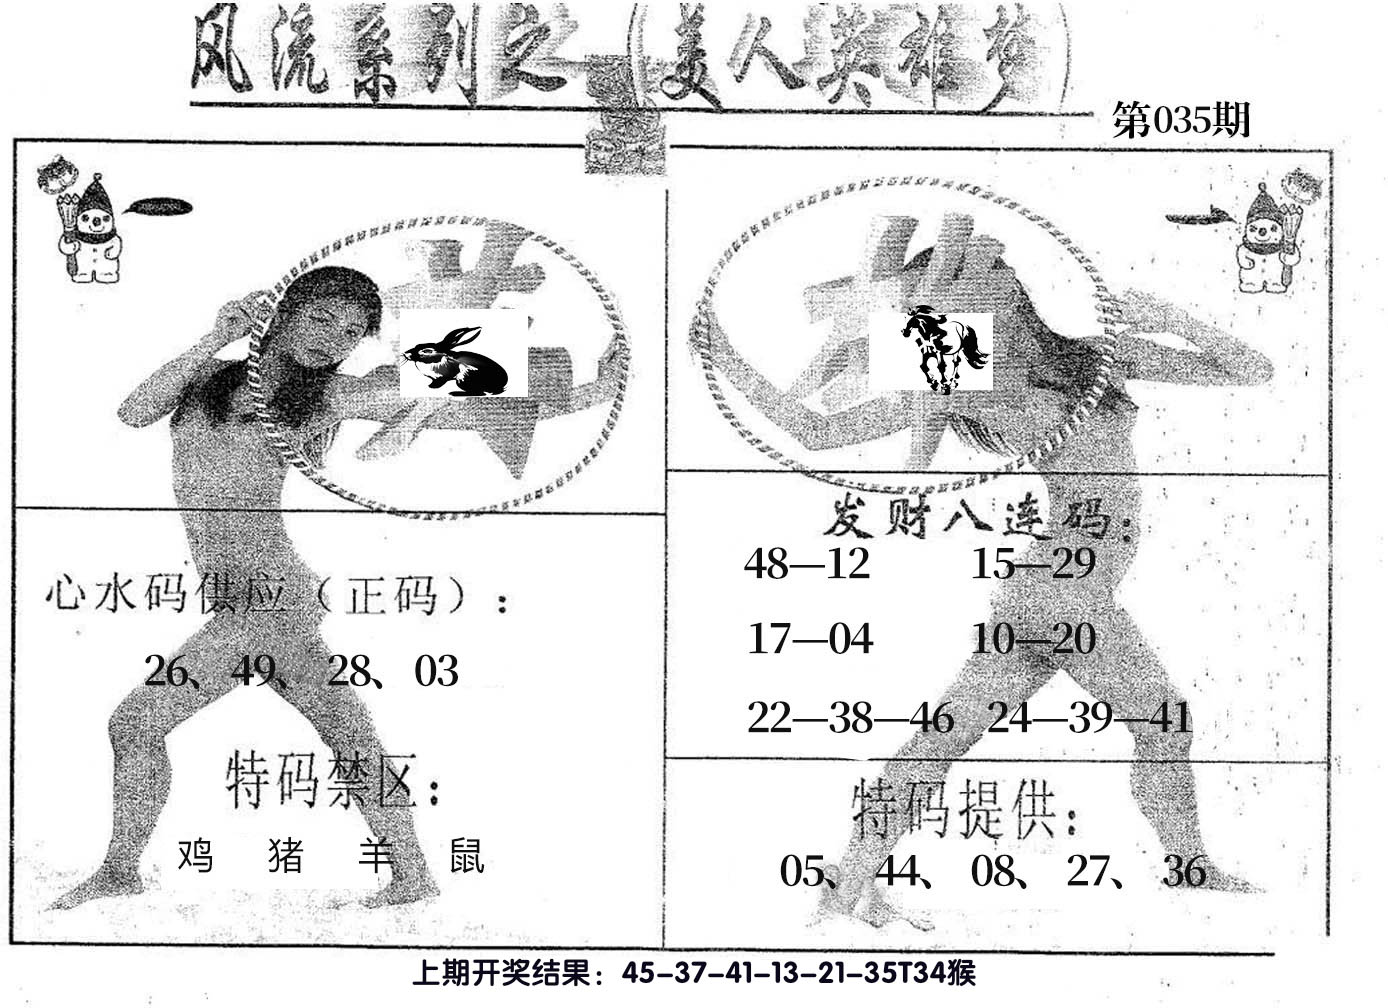 风流系列之
美人英雄梦
第035期
心水码供应（正码）：
26、49、28、03
特码禁区：
鸡 猪 羊 鼠
发财八连码：
48—12 15—29
17—04 10—20
22—38—46 24—39—41
特码提供：
05、44、08、27、36
上期开奖结果：45-37-41-13-21-35T34猴